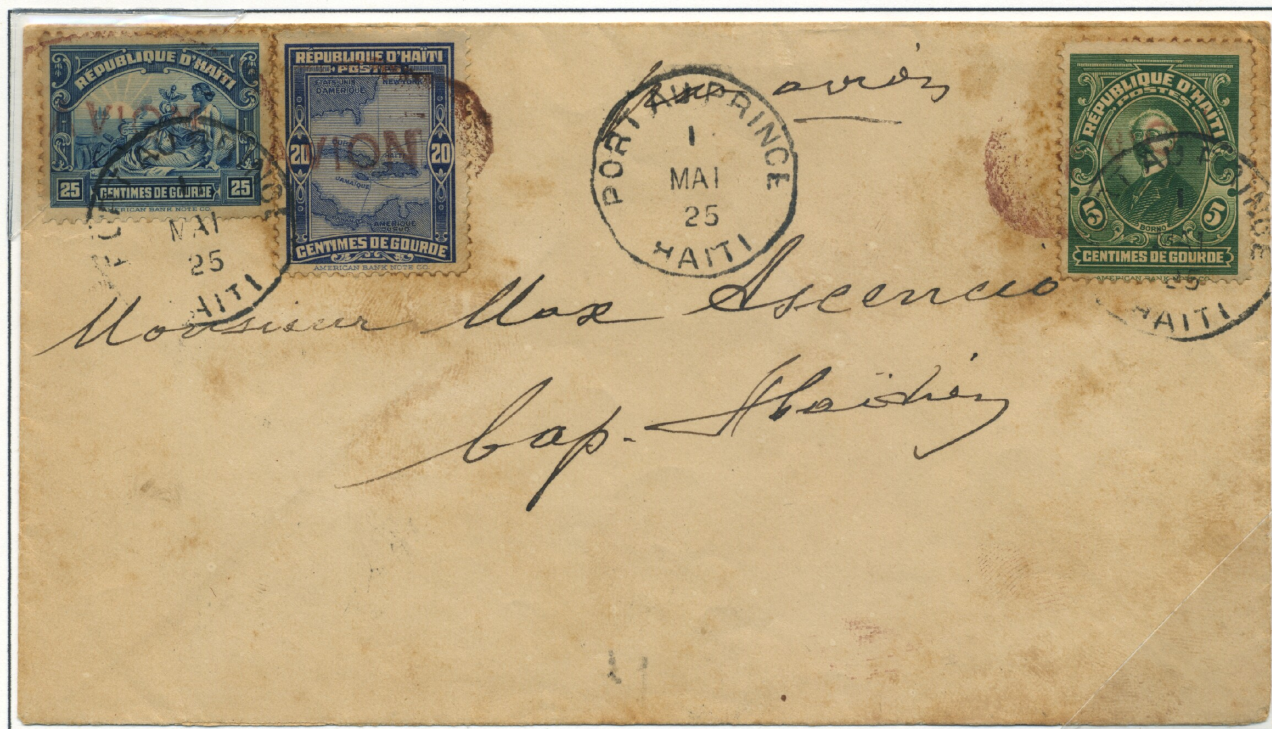 RÉPUBLIQUE D'HAÏTI
AVION
25 CENTIMES DE GOURDE 25
AMERICAN BANK NOTE CO.
MAI
25
HAITI
RÉPUBLIQUE D'HAÏTI
POSTES
ÉTATS-UNIS
D'AMÉRIQUE
AVION
20 20
JAMAÏQUE
AMÉRIQUE
DU SUD
CENTIMES DE GOURDE
AMERICAN BANK NOTE CO.
Par avion
PORT AU PRINCE
1
MAI
25
HAITI
RÉPUBLIQUE D'HAÏTI
POSTES
BORNO
5 5
CENTIMES DE GOURDE
AMERICAN BANK
1
25
HAITI
Monsieur Max Ascencio
Cap-Haïtien